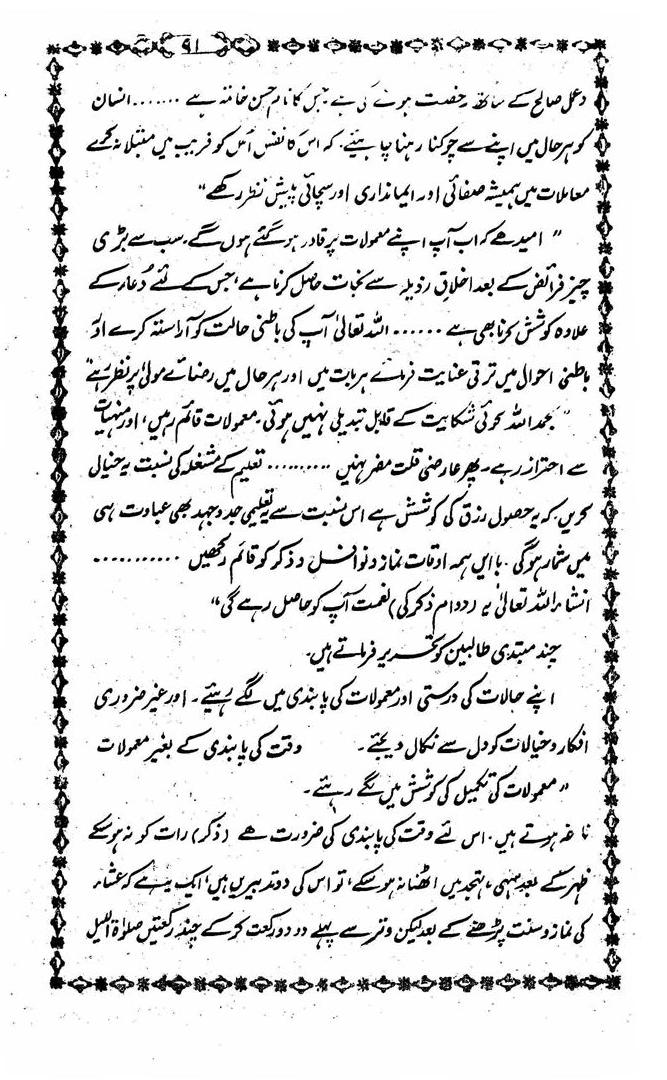 ۹۱
دعمل صالح کے ساتھ رخصت ہونے کی ہے جس کا نام حسن خاتمہ ہے ....... انسان
کو ہر حال میں اپنے سے چوکنا رہنا چاہیئے۔ کہ اس کا نفس اس کو فریب میں مبتلا نہ کرے
معاملات میں ہمیشہ صفائی اور ایمانداری اور سچائی پیش نظر رکھے"
" امید ہے کہ اب آپ اپنے معمولات پر قادر ہو گئے ہوں گے۔ سب سے بڑی
چیز فرائض کے بعد اخلاق رذیلہ سے نجات حاصل کرنا ہے، جس کے لئے دُعاء کے
علاوہ کوشش کرنا بھی ہے ...... اللہ تعالیٰ آپ کی باطنی حالت کو آراستہ کرے اور
باطنی احوال میں ترقی عنایت فرمائے ہر بات میں اور ہر حال میں رضائے مولیٰ پر نظر رہے"
" بحمد اللہ کوئی شکایت کے قابل تبدیلی نہیں ہوئی۔ معمولات قائم رہیں، اور منہیات
سے احتراز رہے۔ پھر عارضی قلت مضر نہیں .......... تعلیم کے مشغلہ کی نسبت یہ خیال
کریں کہ یہ حصول رزق کی کوشش ہے اس نسبت سے یہ تعلیمی جدوجہد بھی عبادت ہی
میں شمار ہوگی۔ با ایں ہمہ اوقات نماز و نوافل و ذکر کو قائم رکھیں ...........
انشاء اللہ تعالیٰ یہ (دوام ذکر کی) نعمت آپ کو حاصل رہے گی"
چند مبتدی طالبین کو تحریر فرماتے ہیں۔
اپنے حالات کی درستی اور معمولات کی پابندی میں لگے رہیئے۔ اور غیر ضروری
افکار و خیالات کو دل سے نکال دیجئے۔ وقت کی پابندی کے بغیر معمولات
" معمولات کی تکمیل کی کوشش میں لگے رہئے۔
ناغہ ہوتے ہیں۔ اس لئے وقت کی پابندی کی ضرورت ہے (ذکر) رات کو نہ ہو سکے
ظہر کے بعد سہی، تہجد میں اٹھنا نہ ہو سکے، تو اس کی دو تدبیریں ہیں، ایک یہ ہے کہ عشاء
کی نماز و سنت پڑھنے کے بعد لیکن وتر سے پہلے دو دو رکعت کر کے چند رکعتیں صلوٰۃ اللیل